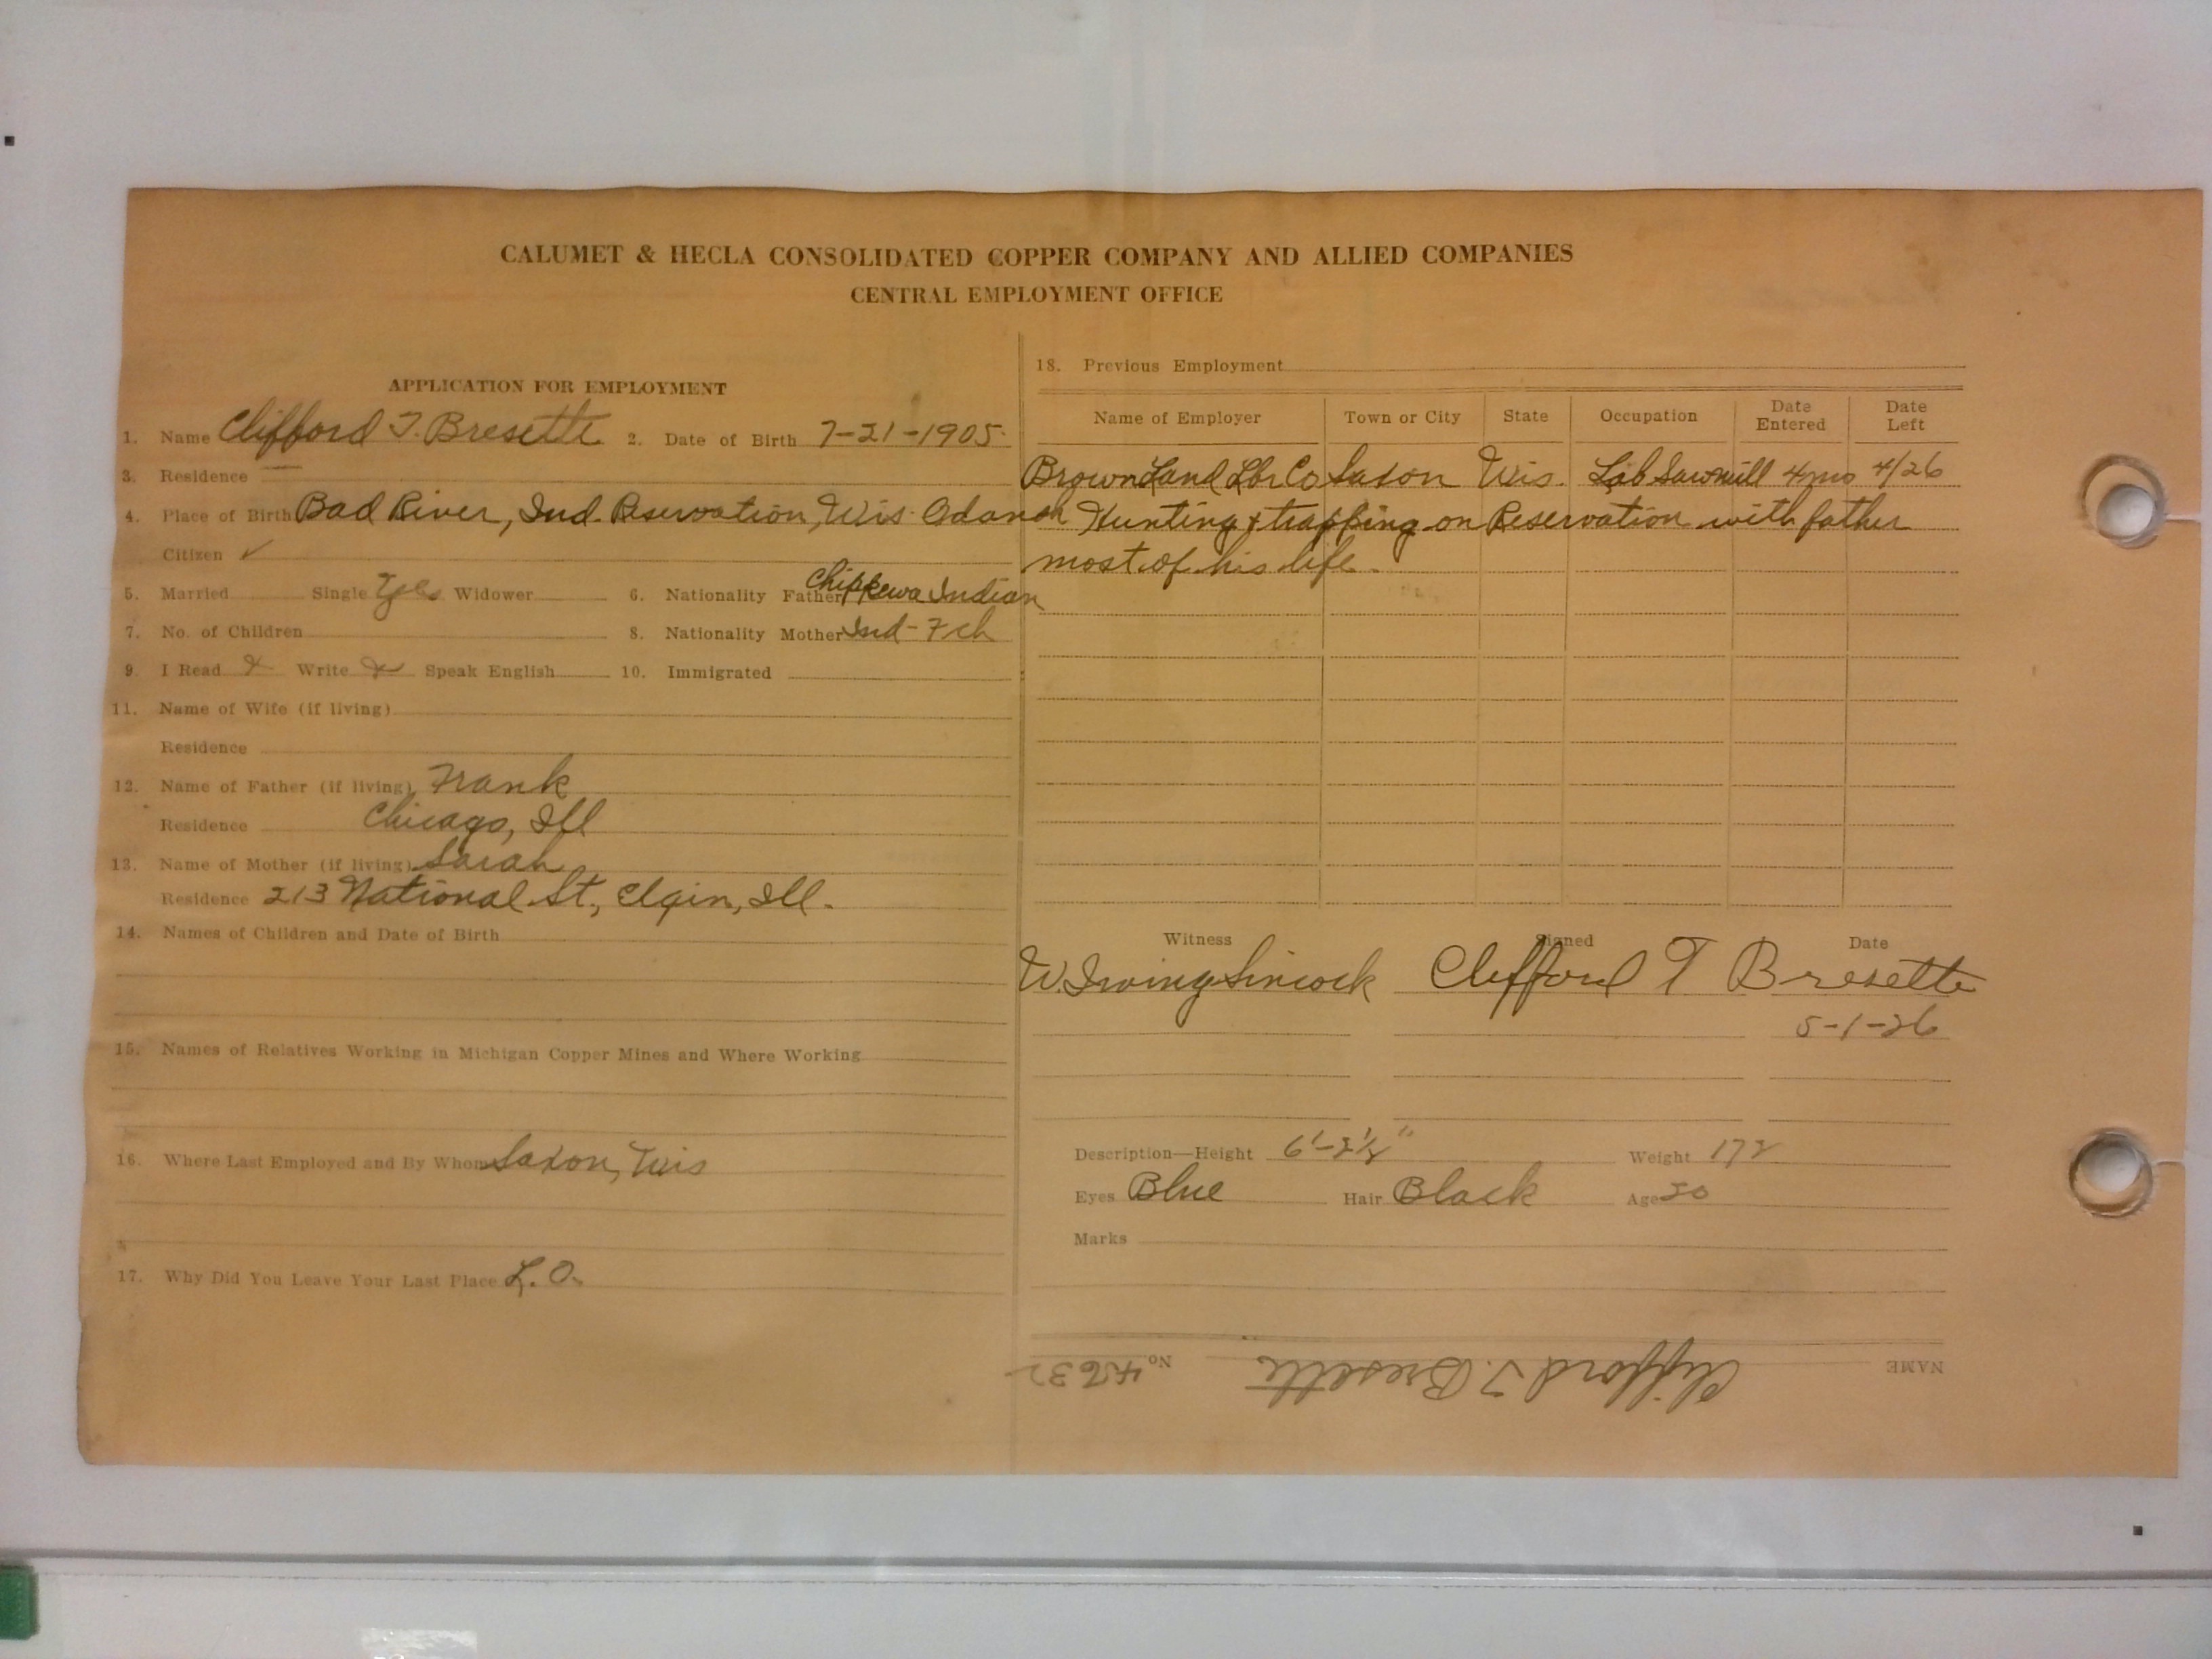 CALUMET & HECLA CONSOLIDATED COPPER COMPANY AND ALLIED COMPANIES
CENTRAL EMPLOYMENT OFFICE
APPLICATION FOR EMPLOYMENT
1. Name Clifford T. Bresette 2. Date of Birth 7-21-1905
3. Residence —
4. Place of Birth Bad River, Ind. Reservation, Wis. Odanah
Citizen ✓
5. Married Single Yes Widower 6. Nationality Father Chippewa Indian
7. No. of Children 8. Nationality Mother Ind-Fch
9. I Read Write Speak English 10. Immigrated
11. Name of Wife (if living)
Residence
12. Name of Father (if living) Frank
Residence Chicago, Ill
13. Name of Mother (if living) Sarah
Residence 213 National St., Elgin, Ill.
14. Names of Children and Date of Birth
15. Names of Relatives Working in Michigan Copper Mines and Where Working
16. Where Last Employed and By Whom Saxon, Wis
17. Why Did You Leave Your Last Place L.O.
18. Previous Employment
Name of Employer Town or City State Occupation Date Entered Date Left
Brown Land Lbr Co Saxon Wis. Lab Sawmill 4mo 4/26
Hunting & trapping on Reservation with father
most of his life.
Witness Signed Date
W. Irving Sincock Clifford T Bresette
5-1-26
Description—Height 6'-2½" Weight 172
Eyes Blue Hair Black Age 20
Marks
NAME Clifford T. Bresette No.